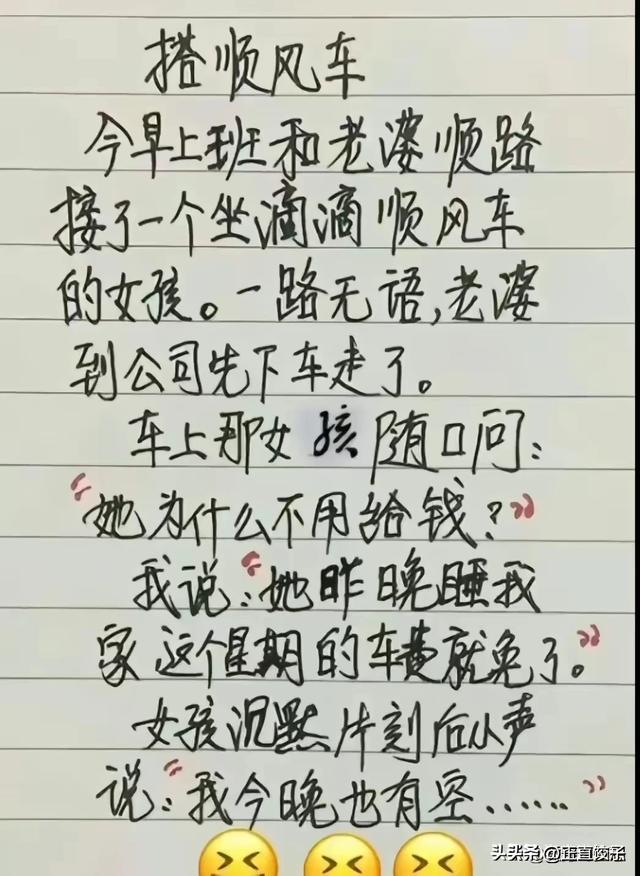 搭顺风车
今早上班和老婆顺路
接了一个坐滴滴顺风车
的女孩。一路无语,老婆
到公司先下车走了。
车上那女孩随口问:
“她为什么不用给钱?”
我说:“她昨晚睡我
家这个星期的车费就免了。”
女孩沉默片刻后小声
说:“我今晚也有空……”
头条 @正直饺子